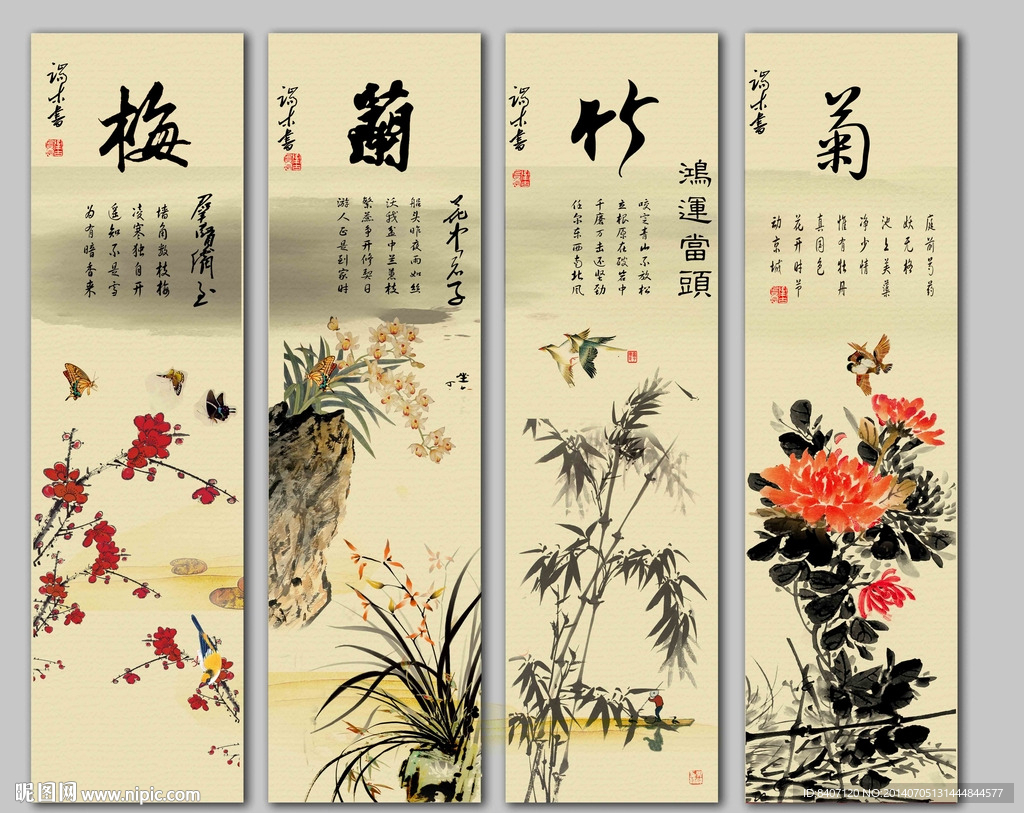 端木书
梅
墙角数枝梅
凌寒独自开
遥知不是雪
为有暗香来
端木书
蘭
花中君子
船头昨夜雨如丝
沃我盆中兰蕙枝
繁蕊争开修契日
游人正是到家时
端木书
竹
鴻運當頭
咬定青山不放松
立根原在破岩中
千磨万击还坚劲
任尔东西南北风
端木书
菊
庭前芍药
妖无格
池上芙蕖
净少情
惟有牡丹
真国色
花开时节
动京城
昵图网 www.nipic.com
ID:8407120 NO.20140705131444844577